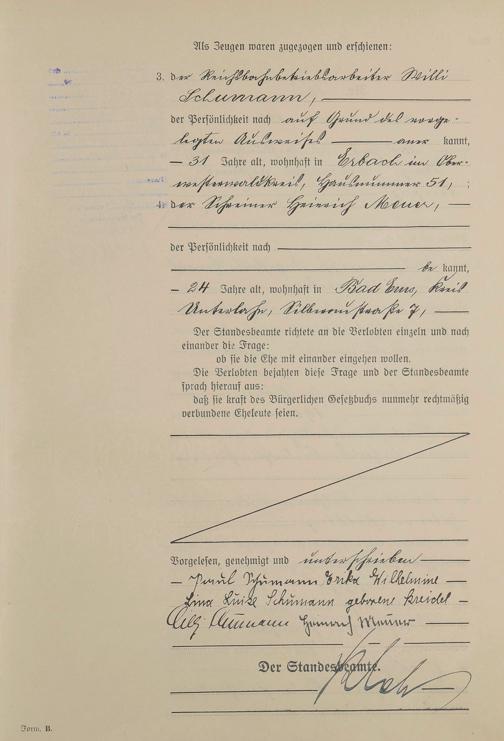 Als Zeugen waren zugezogen und erschienen:
3. der Reichsbahnbetriebsarbeiter Willi
Schumann,
der Persönlichkeit nach auf Grund des vorge-
legten Ausweises aner kannt,
31 Jahre alt, wohnhaft in Erbach im Ober-
westerwaldkreis, Hausnummer 51,
4. der Schreiner Heinrich Meuer,
der Persönlichkeit nach
be kannt,
24 Jahre alt, wohnhaft in Bad Ems, Kreis
Unterlahn, Silberaustraße 7,
Der Standesbeamte richtete an die Verlobten einzeln und nach
einander die Frage:
ob sie die Ehe mit einander eingehen wollen.
Die Verlobten bejahten diese Frage und der Standesbeamte
sprach hierauf aus:
daß sie kraft des Bürgerlichen Gesetzbuchs nunmehr rechtmäßig
verbundene Eheleute seien.
Vorgelesen, genehmigt und unterschrieben
Paul Schumann Erika Wilhelmine
Lina Luise Schumann geborene Kreidel
Willy Schumann Heinrich Meuer
Der Standesbeamte.
Form. B.